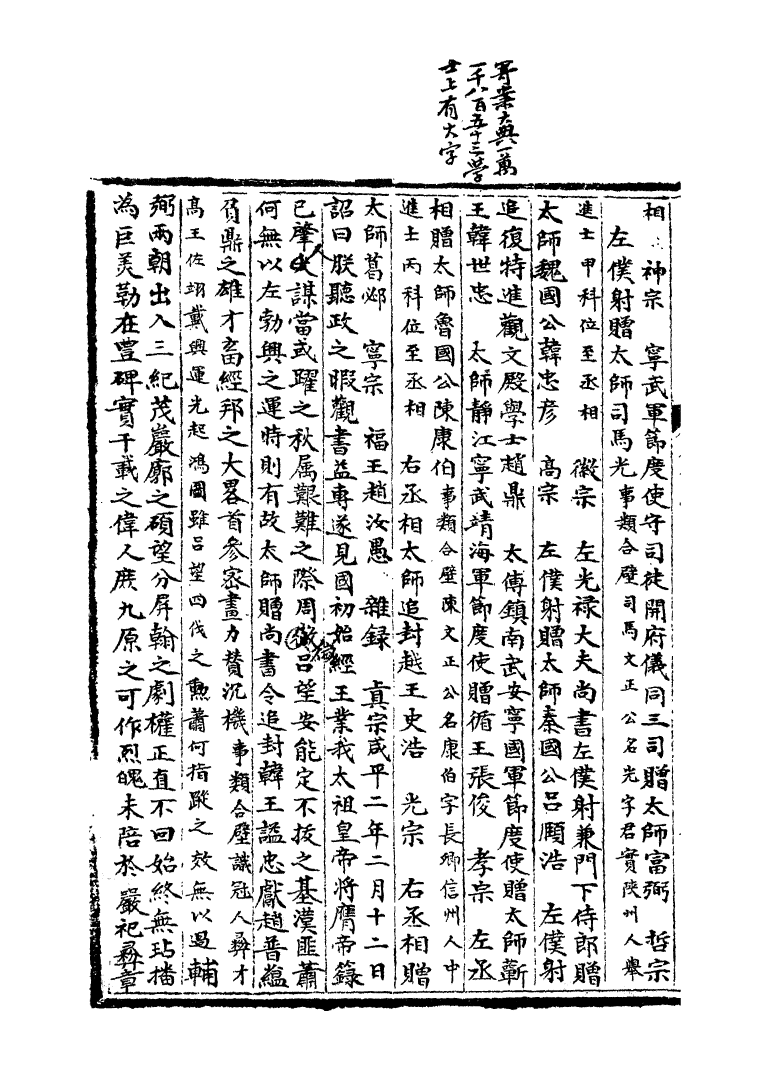 寄案大典一萬
一千八百五十三學
士上有大字
相 神宗 寧武軍節度使守司徒開府儀同三司贈太師富弼 哲宗
左僕射贈太師司馬光事類合璧司馬文正公名光字君實陝州人舉
進士甲科位至丞相 徽宗 左光禄大夫尚書左僕射兼門下侍郎贈
太師魏國公韓忠彦 高宗 左僕射贈太師秦國公吕頤浩 左僕射
追復特進觀文殿學士趙鼎 太傅鎮南武安寧國軍節度使贈太師蘄
王韓世忠 太師静江寧武靖海軍節度使贈循王張俊 孝宗 左丞
相贈太師魯國公陳康伯事類合璧陳文正公名康伯字長卿信州人中
進士丙科位至丞相 右丞相太師追封越王史浩 光宗 右丞相贈
太師葛邲 寧宗 福王趙汝愚 雜録 真宗咸平二年二月十二日
詔曰朕聽政之暇觀書益専遂見國初始經王業我太祖皇帝將膺帝籙
已肇人謀當或躍之秋属艱難之際周微吕望安能定不拔之基漢匪蕭
何無以左勃興之運時則有故太師贈尚書令追封韓王諡忠獻趙普藴
負鼎之雄才畜經邦之大畧首參宻畫力賛沉機事類合璧識冠人彛才
高王佐翊戴興運光起鴻圖雖吕望四伐之勲蕭何指蹤之效無以過輔
弼兩朝出入三紀茂巖廓之碩望分屏翰之劇權正直不回始終無玷播
為巨美勒在豐碑實千載之偉人庶九原之可作烈魄未陪於嚴祀彛章